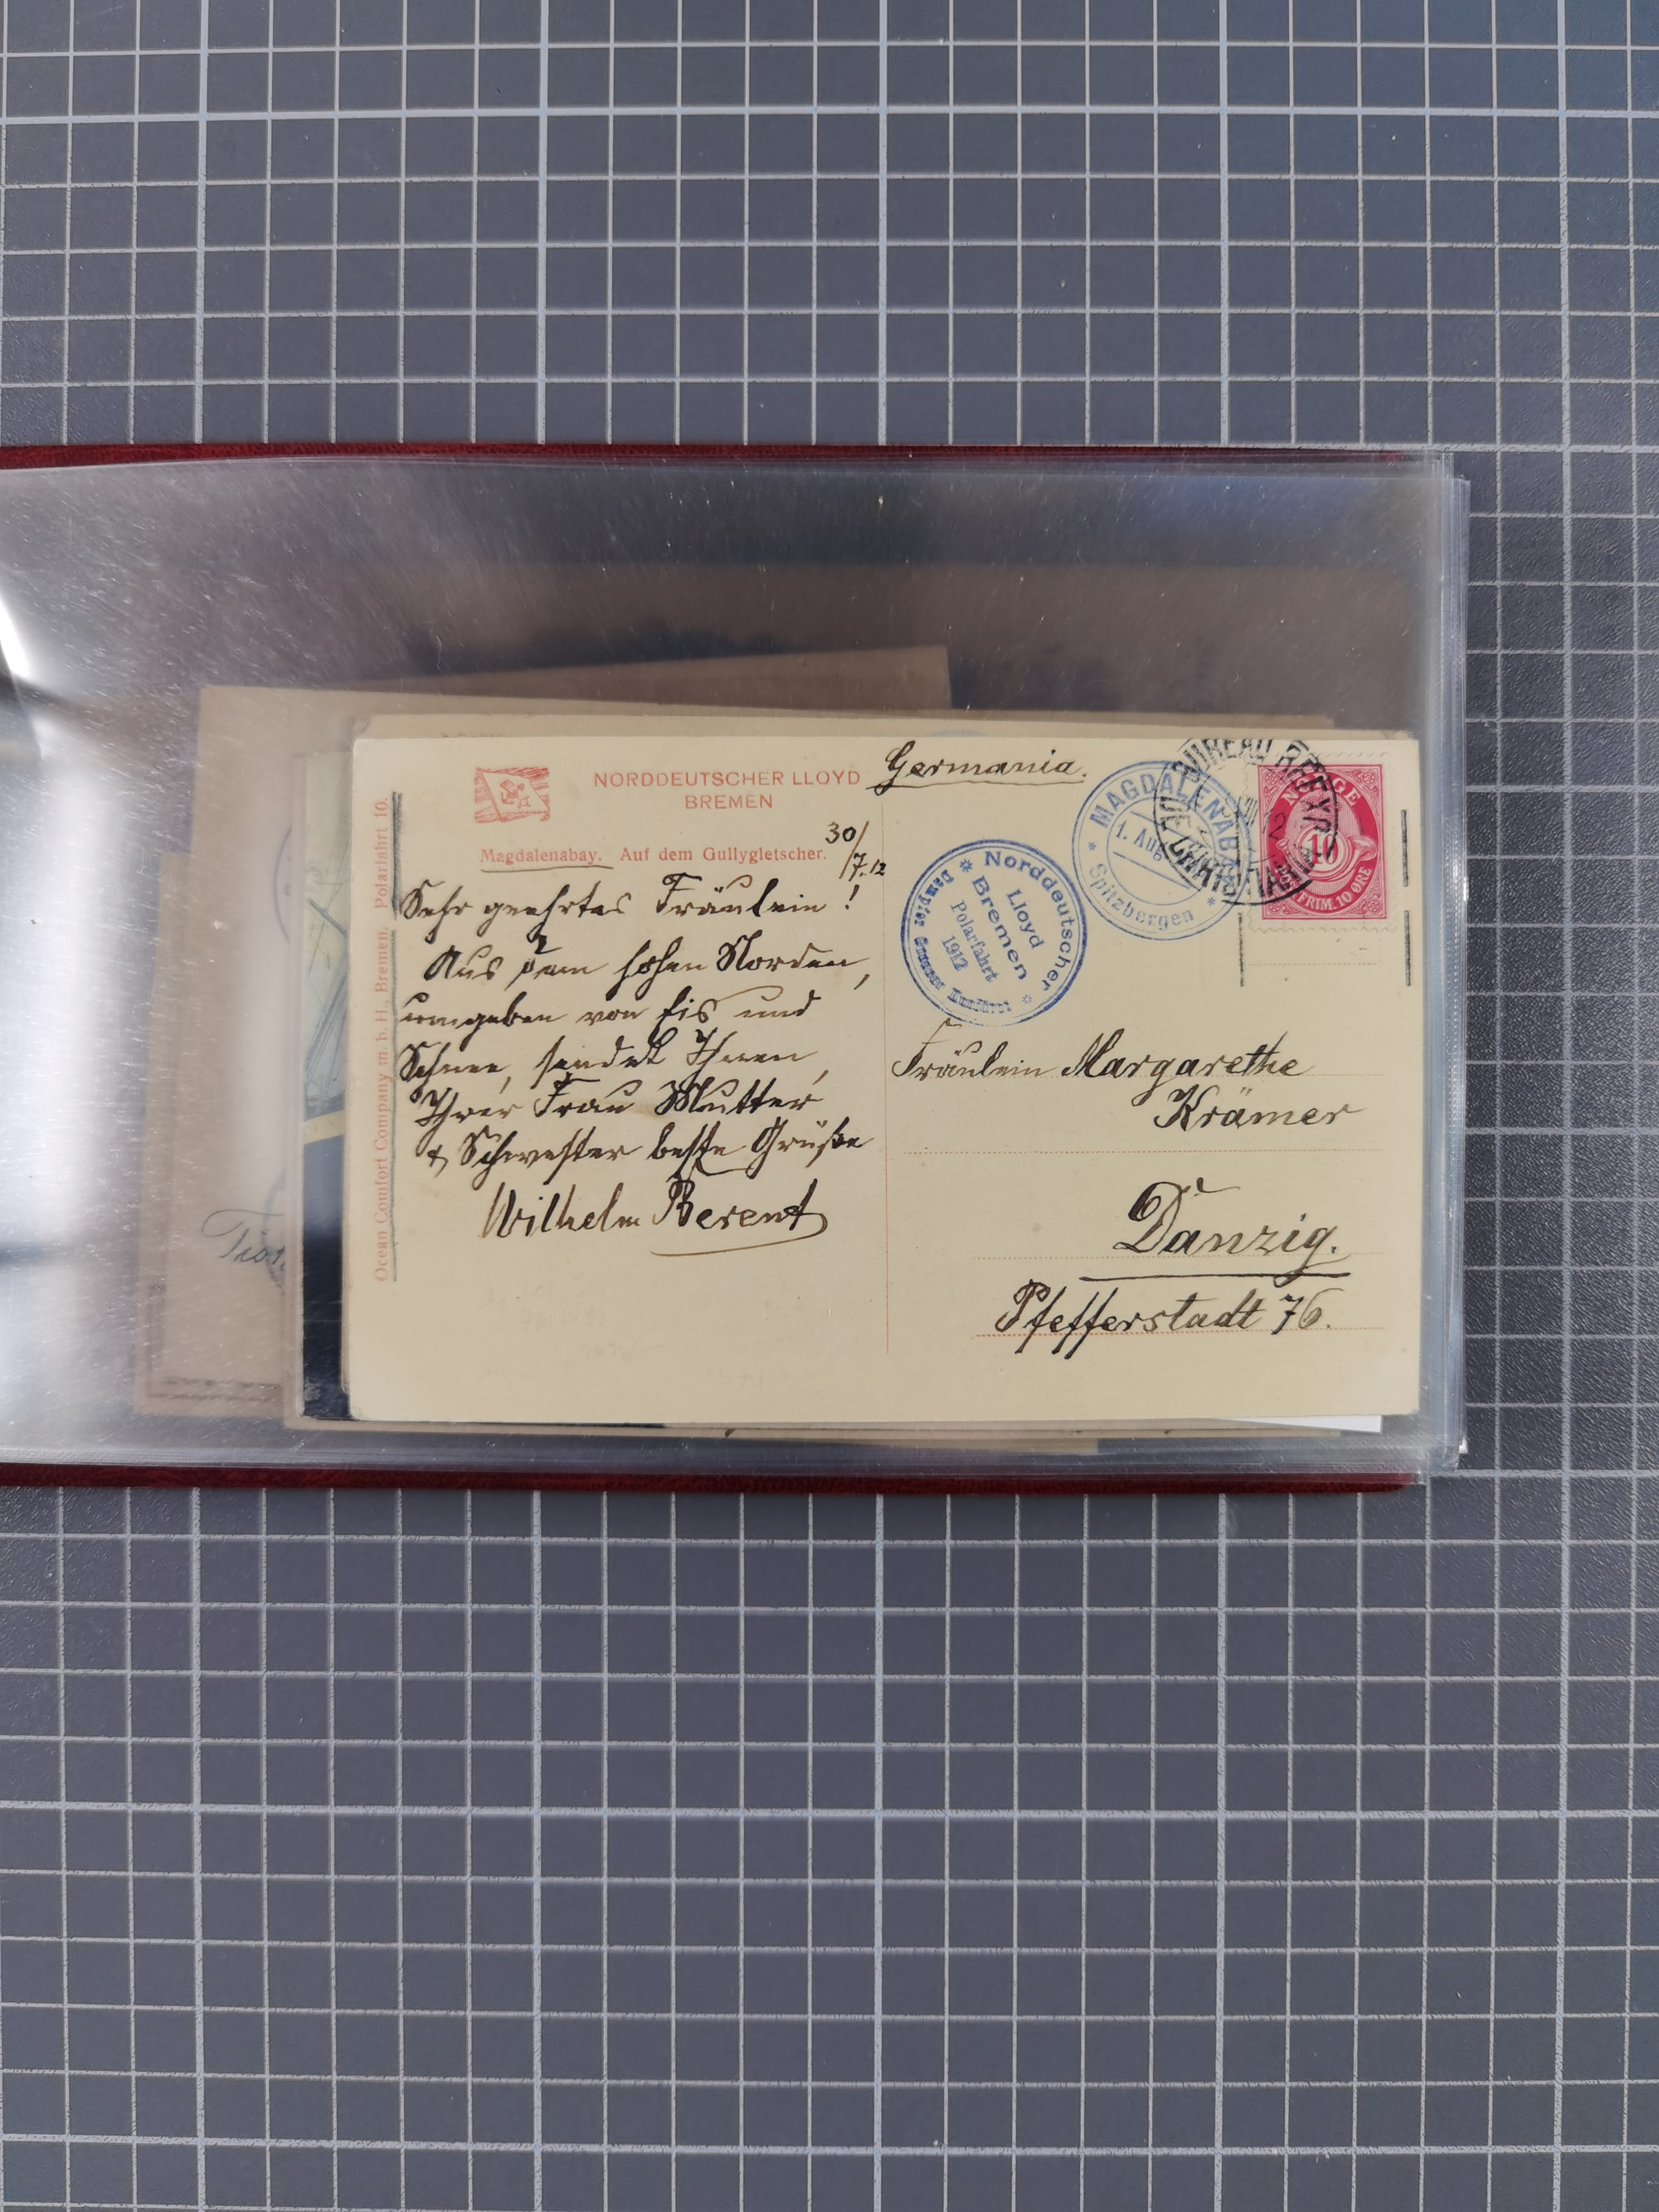 Germania.
NORDDEUTSCHER LLOYD
BREMEN
30/7.12
Magdalenabay. Auf dem Gullygletscher.
Sehr geehrtes Fräulein!
Aus dem hohen Norden,
umgeben von Eis und
Schnee, sendet Ihnen,
Ihrer Frau Mutter
& Schwester beste Grüße
Wilhelm Berent
Ocean Comfort Company m. b. H., Bremen. Polarfahrt 10.
Norddeutscher
Lloyd
Bremen
Polarfahrt
1912
Dampfer Grosser Kurfürst
MAGDALENABAY
1. Aug.
Spitzbergen
BUREAU RÉEXP.
CHRISTIANIA
NORGE
10
FRIM. 10 ØRE
Fräulein Margarethe
Krämer
Danzig.
Pfefferstadt 76.